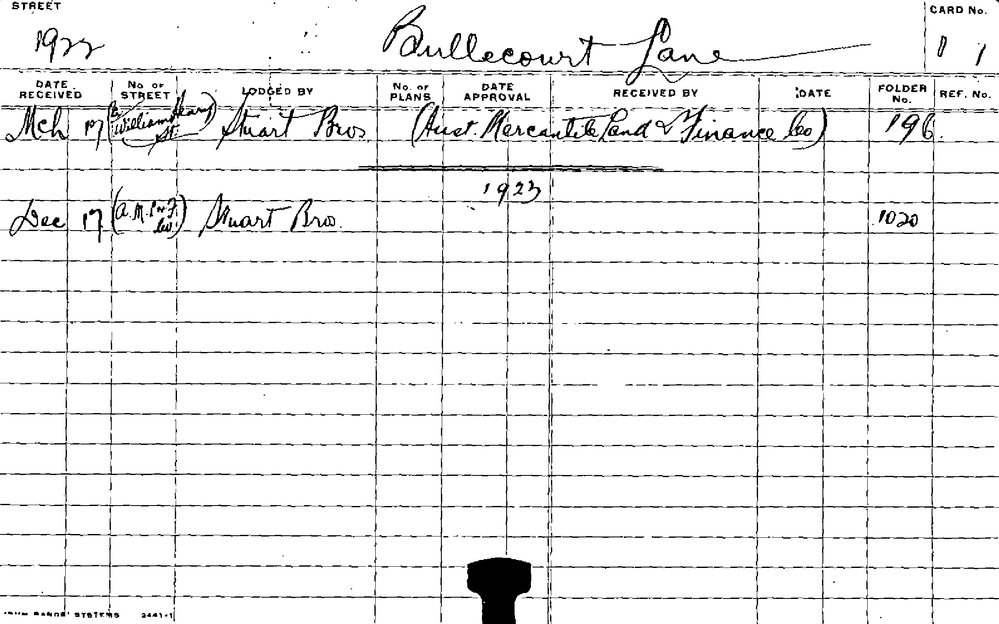 STREET
CARD No.
1922 Bullecourt Lane 1 1
DATE RECEIVED No. OF STREET LODGED BY No. OF PLANS DATE APPROVAL RECEIVED BY DATE FOLDER No. REF. No.
Mch 17 (& William Henry St.) Stuart Bros. (Aust. Mercantile Land & Finance Co) 196
1923
Dec 17 (A.M.L & F. Co.) Stuart Bro. 1020
SYSTEMS 2441-1